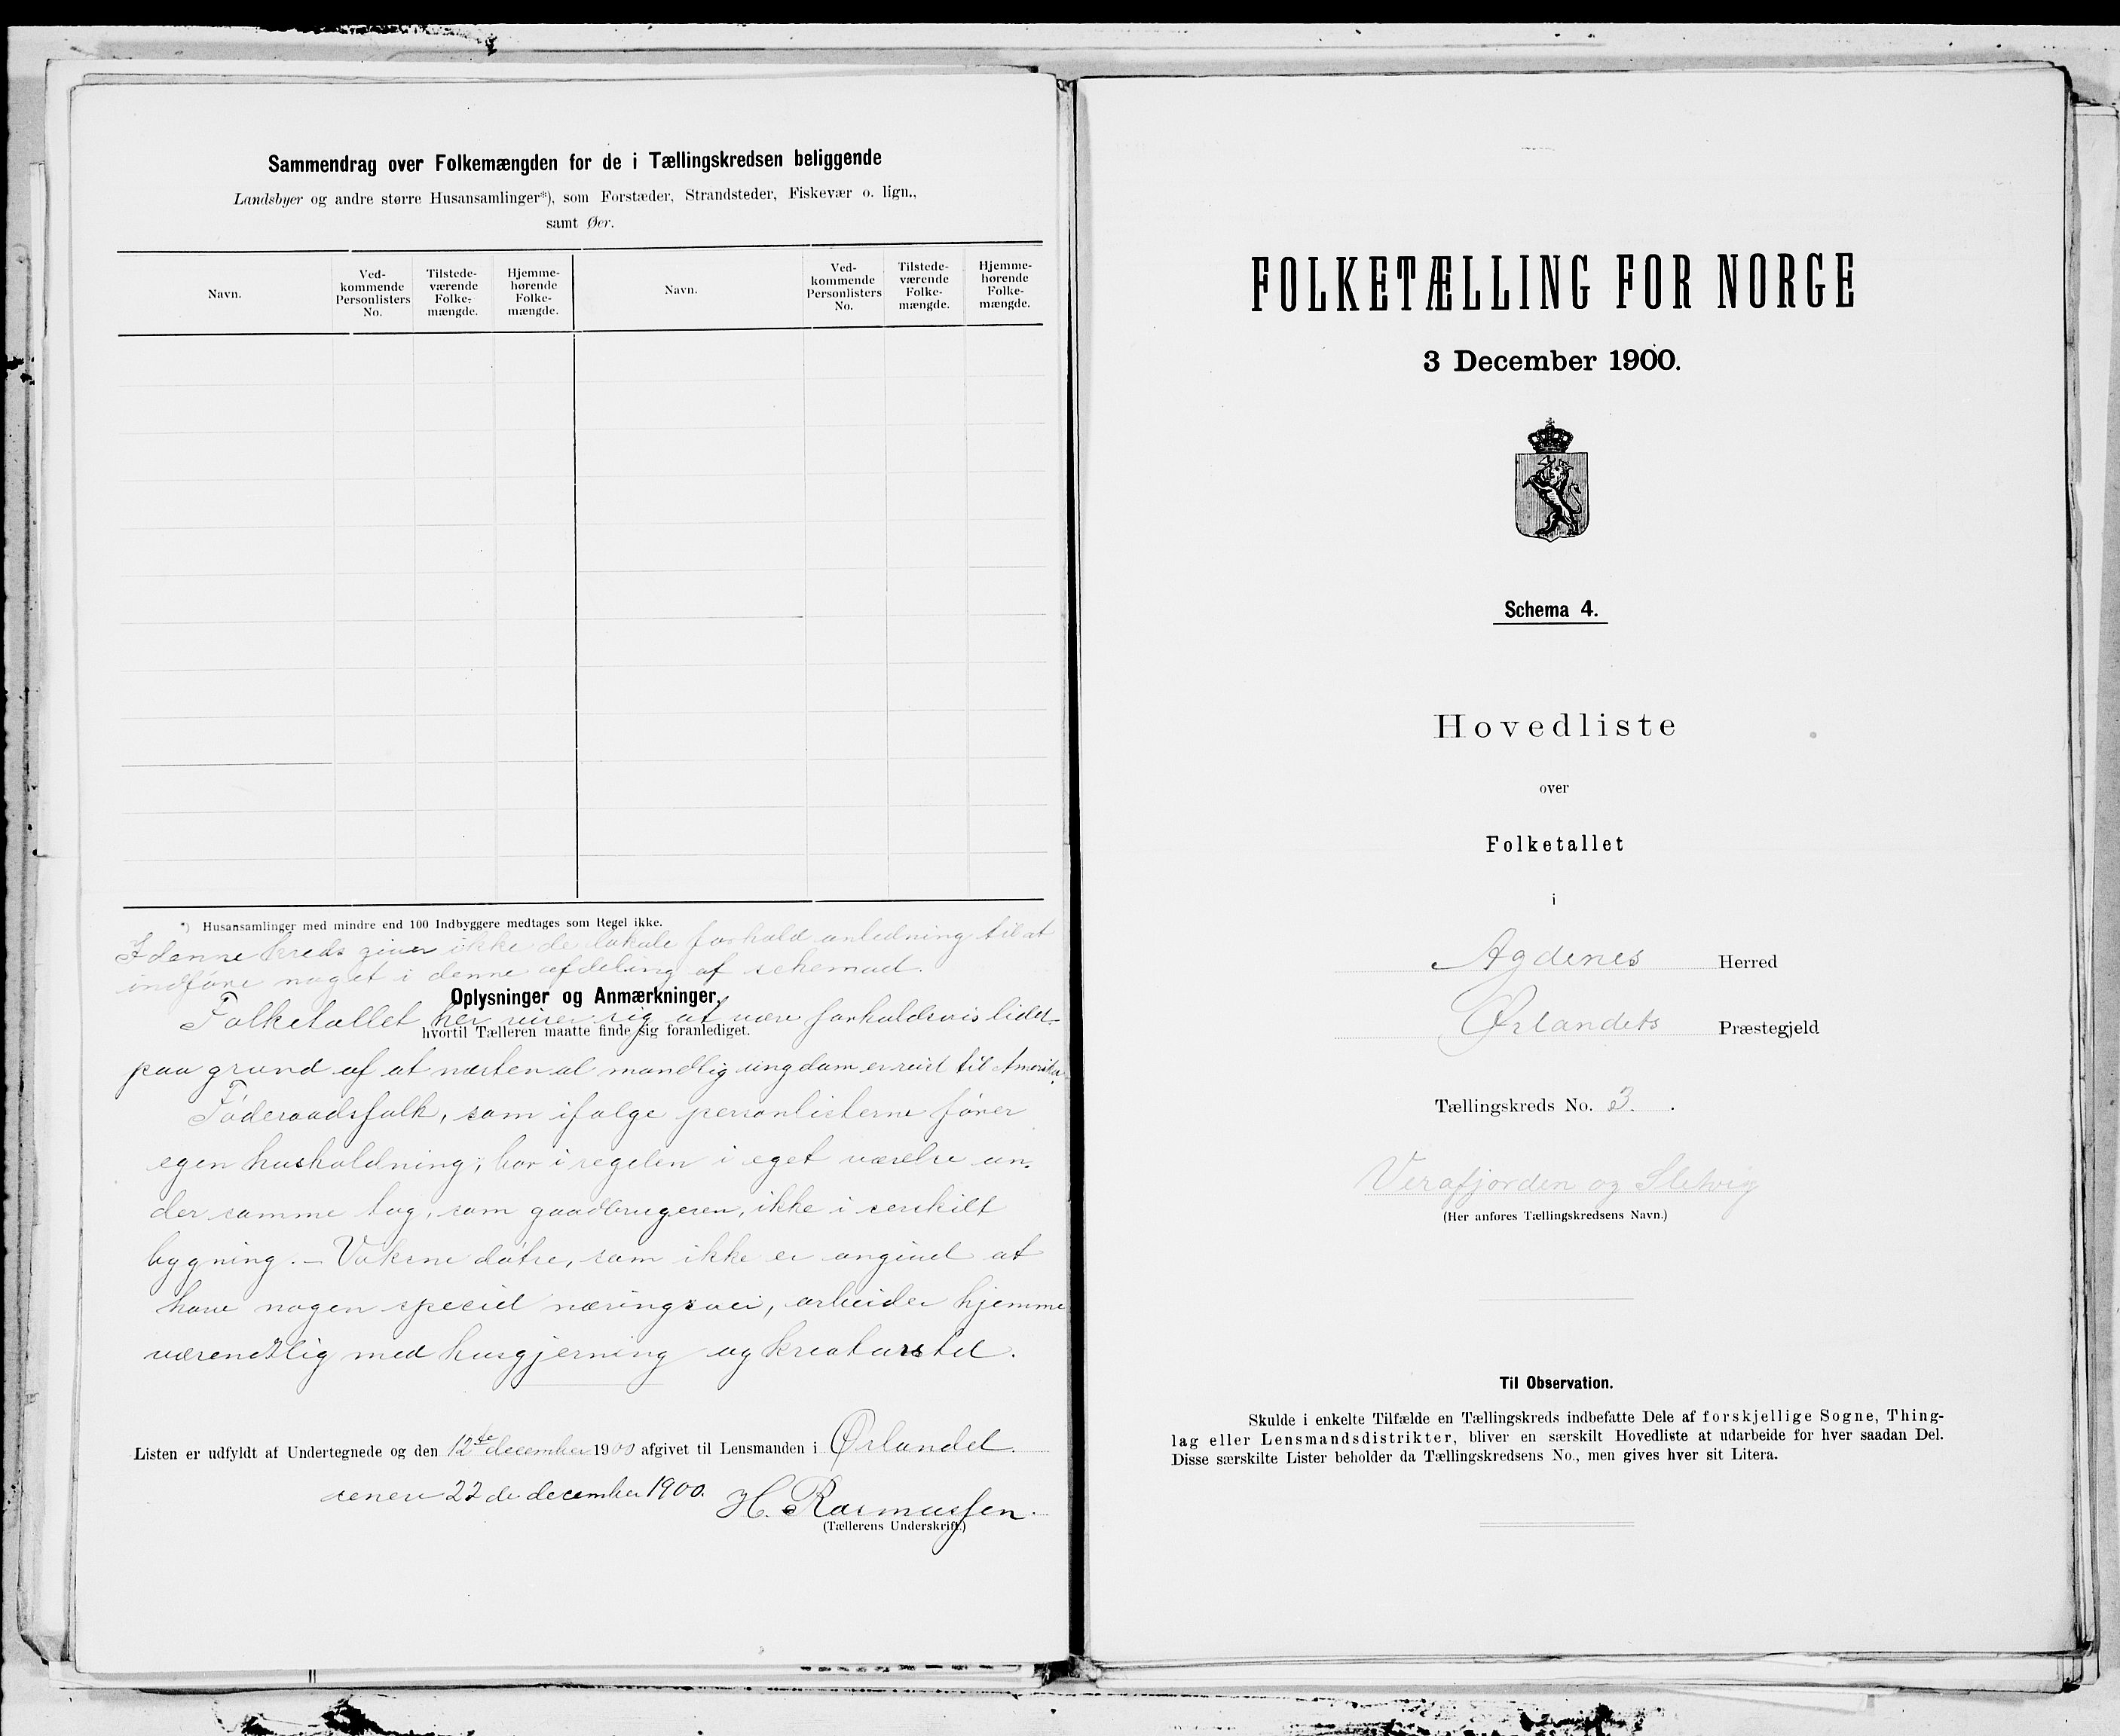 Sammendrag over Folkemængden for de i Tællingskredsen beliggende
Landsbyer og andre større Husansamlinger*), som Forstæder, Strandsteder, Fiskevær o. lign.,
samt Øer.
Navn.
Ved-
kommende
Personlisters
No.
Tilstede-
værende
Folke-
mængde.
Hjemme-
hørende
Folke-
mængde.
Navn.
Ved-
kommende
Personlisters
No.
Tilstede-
værende
Folke-
mængde.
Hjemme-
hørende
Folke-
mængde.
*) Husansamlinger med mindre end 100 Indbyggere medtages som Regel ikke.
I denne kreds giver ikke de lokale forhold anledning til at
indføre noget i denne afdeling af schemaet.
Oplysninger og Anmærkninger,
Folketallet her viser sig at være forholdsvis lidet
hvortil Tælleren maatte finde sig foranlediget.
paa grund af at næsten al mandlig ungdom er reist til Amerika.
Føderaadsfolk, som ifølge personlisterne fører
egen husholdning, bor i regelen i eget værelse un-
der samme tag, som gaardbrugeren, ikke i serskilt
bygning. – Voksne døtre, som ikke er angivet at
have nogen speciel næringsvei, arbeider hjemme
væsentlig med husgjerning og kreaturstel.
Listen er udfyldt af Undertegnede og den 12te december 1900 afgivet til Lensmanden i Ørlandet.
senere 22de december 1900.
H. Rasmussen.
(Tællerens Underskrift.)
FOLKETÆLLING FOR NORGE
3 December 1900.
Schema 4.
Hovedliste
over
Folketallet
i
Agdenes Herred
Ørlandets Præstegjeld
Tællingskreds No. 3.
Verafjorden og Sletvig
(Her anføres Tællingskredsens Navn.)
Til Observation.
Skulde i enkelte Tilfælde en Tællingskreds indbefatte Dele af forskjellige Sogne, Thing-
lag eller Lensmandsdistrikter, bliver en særskilt Hovedliste at udarbeide for hver saadan Del.
Disse særskilte Lister beholder da Tællingskredsens No., men gives hver sit Litera.